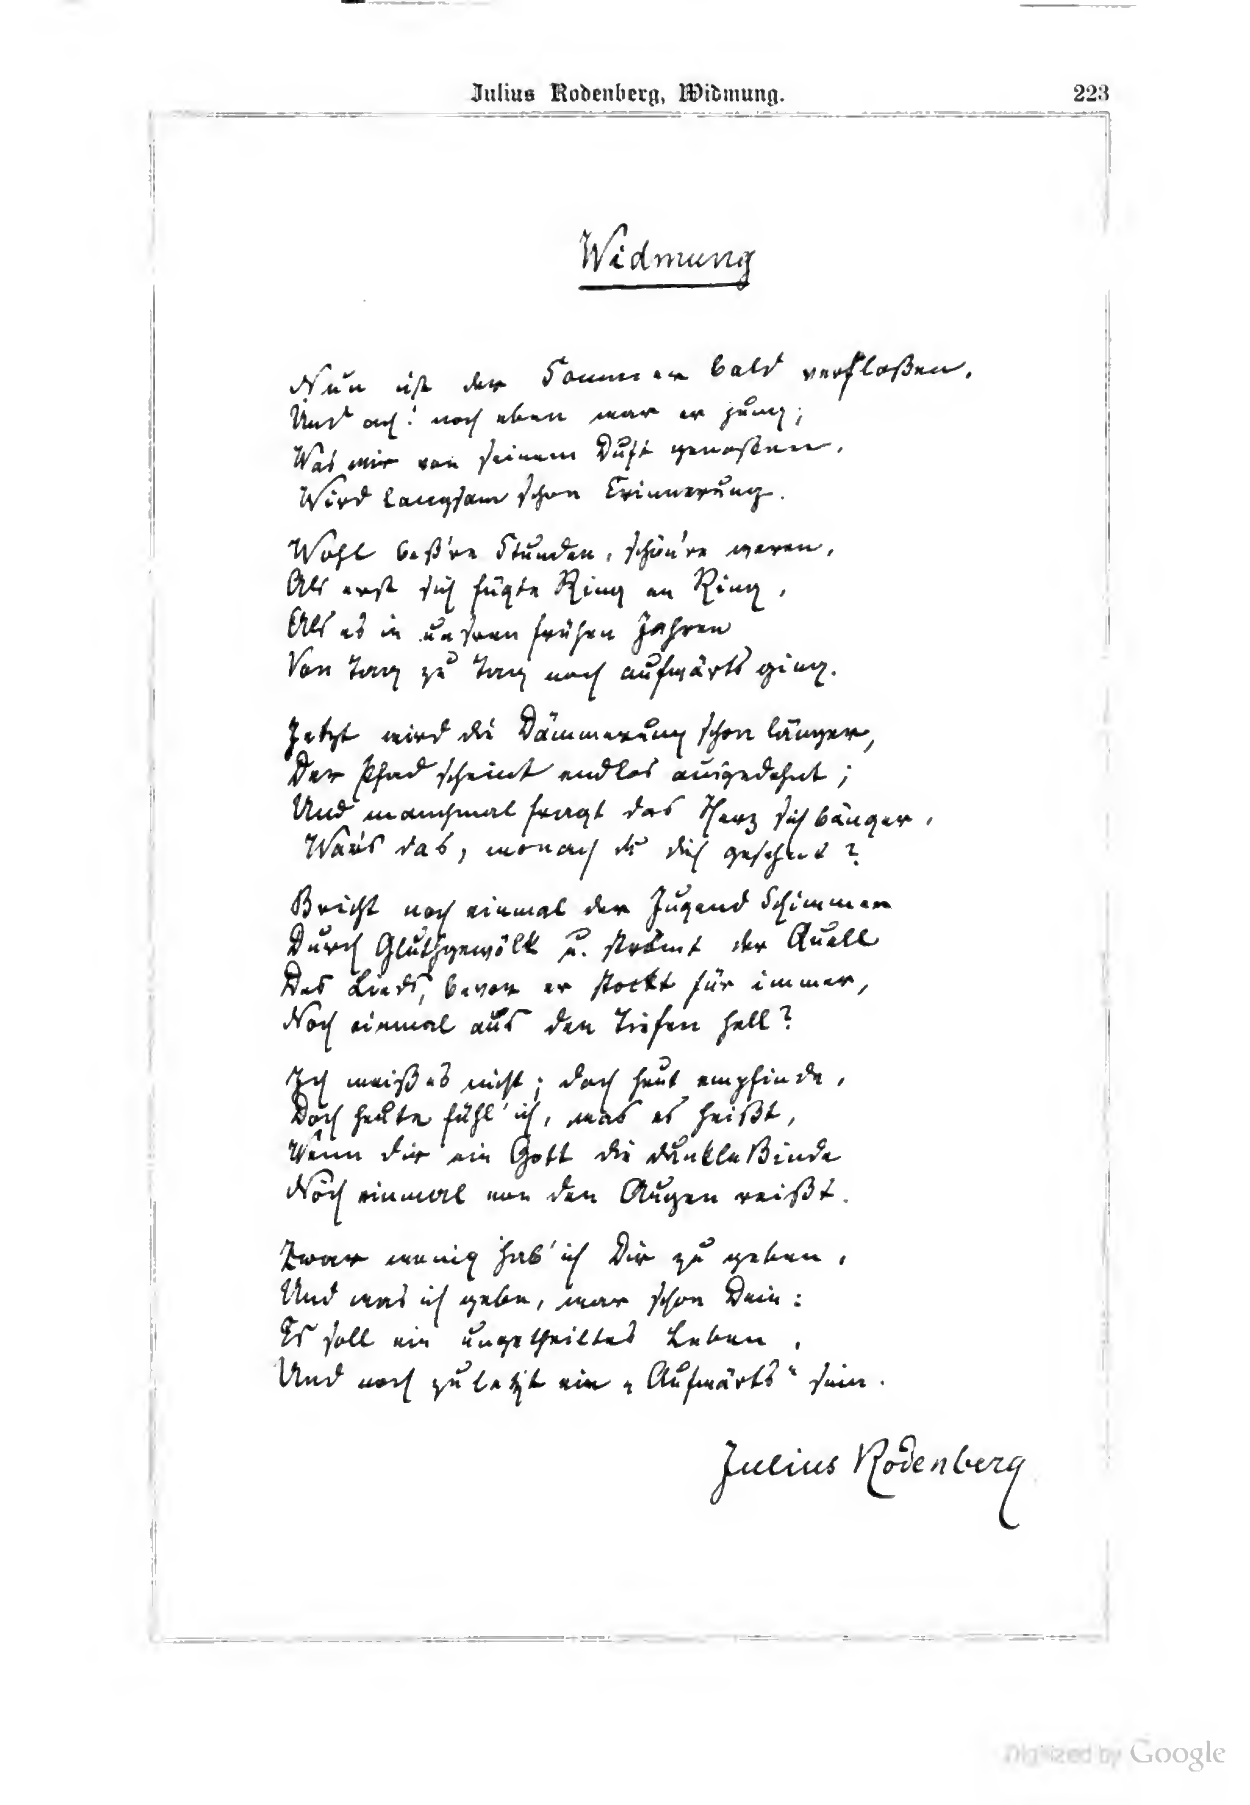 Julius Rodenberg, Widmung. 223
Widmung
Nun ist der Sommer bald verfloßen,
Und ach! noch eben war er jung;
Was wir von seinem Duft genoßen,
Wird langsam schon Erinnerung.
Wohl beß're Stunden, schön're waren,
Als erst sich fügte Ring an Ring,
Als es in unsren frühen Jahren
Von Tag zu Tag noch aufwärts ging.
Jetzt wird die Dämmerung schon länger,
Der Pfad scheint endlos ausgedehnt;
Und manchmal fragt das Herz sich bänger,
War's das, wonach du dich gesehnt?
Bricht noch einmal der Jugend Schimmer
Durch Gluthgewölk u. strömt der Quell
Des Lieds, bevor er stockt für immer,
Noch einmal aus den Tiefen hell?
Ich weiß es nicht; doch heut empfinde,
Doch heute fühl' ich, was es heißt,
Wenn dir ein Gott die dunkle Binde
Noch einmal von den Augen reißt.
Zwar wenig hab' ich Dir zu geben,
Und was ich gebe, war schon Dein:
Es soll ein ungetheiltes Leben,
Und noch zuletzt ein „Aufwärts“ sein.
Julius Rodenberg
Digitized by Google